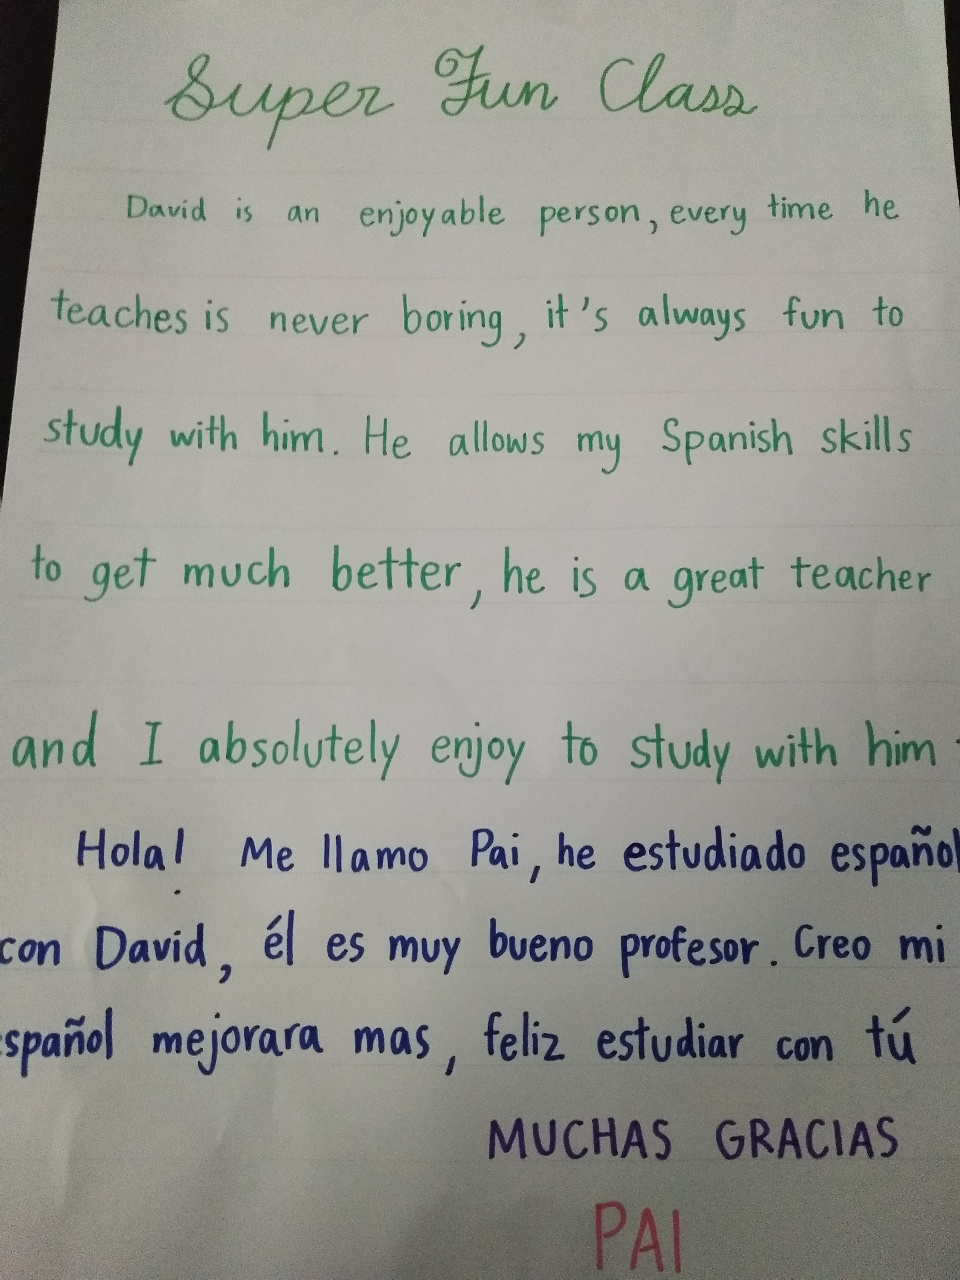 Super Fun Class
David is an enjoyable person, every time he
teaches is never boring, it's always fun to
study with him. He allows my Spanish skills
to get much better, he is a great teacher
and I absolutely enjoy to study with him.
Hola! Me llamo Pai, he estudiado español
con David, él es muy bueno profesor. Creo mi
español mejorara mas, feliz estudiar con tú
MUCHAS GRACIAS
PAI